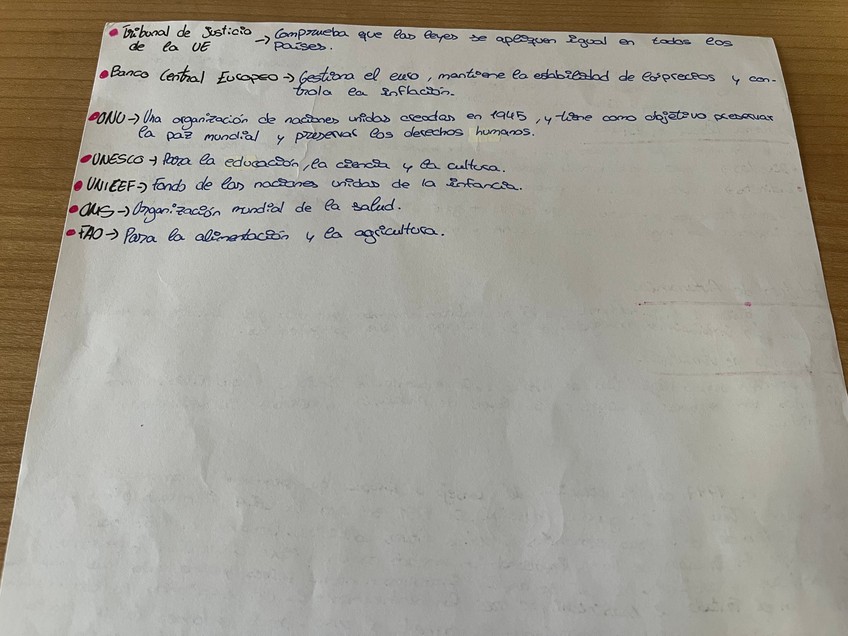 • Tribunal de Justicia → Comprueba que las leyes se apliquen igual en todos los
de la UE países.
• Banco Central Europeo → Gestiona el euro, mantiene la estabilidad de los precios y con-
trola la inflación.
• ONU → Una organización de naciones unidas creadas en 1945, y tiene como objetivo preservar
la paz mundial y preservar los derechos humanos.
• UNESCO → Para la educación, la ciencia y la cultura.
• UNICEF → Fondo de las naciones unidas de la infancia.
• OMS → Organización mundial de la salud.
• FAO → Para la alimentación y la agricultura.